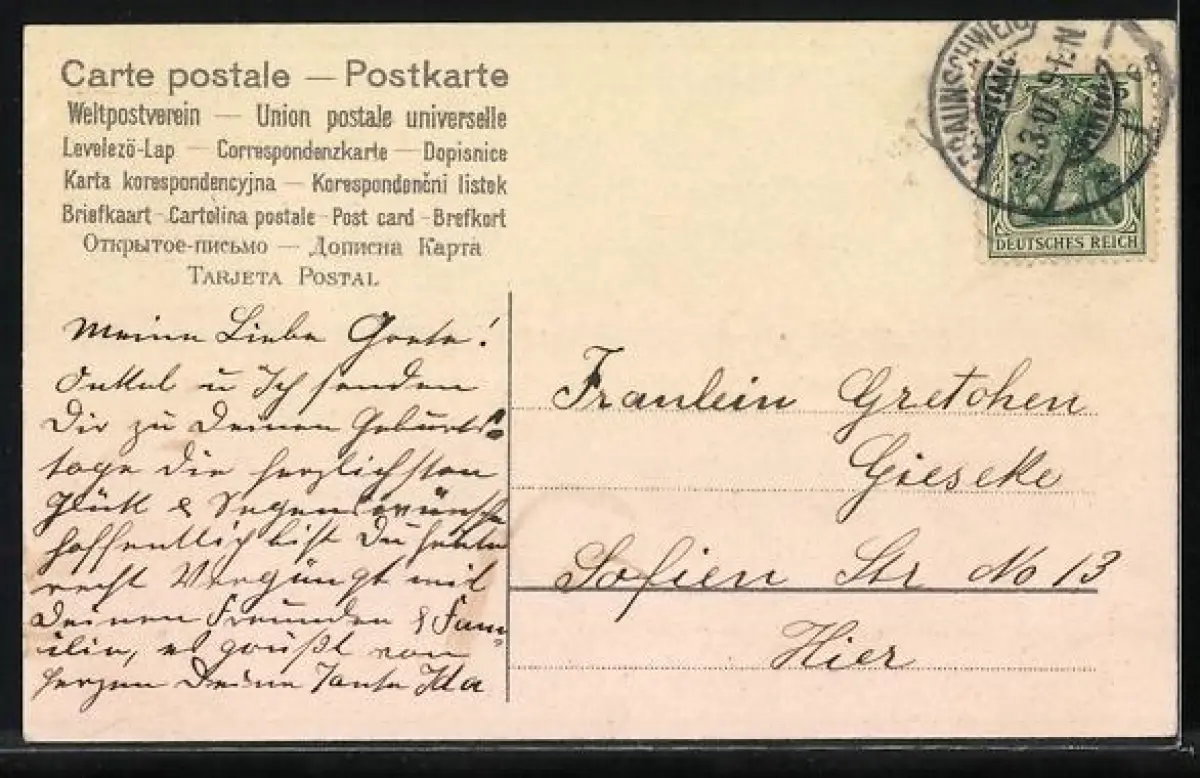 Carte postale — Postkarte
Weltpostverein — Union postale universelle
Levelező-Lap — Correspondenzkarte — Dopisnice
Karta korespondencyjna — Korespondenčni listek
Briefkaart - Cartolina postale - Post card - Brefkort
Открытое-письмо — Дописна Карта
Tarjeta Postal
BRAUNSCHWEIG
9.3.07. 9-1 N
DEUTSCHES REICH
Meine Liebe Grete!
Onkel u Ich senden
Dir zu Deinen Geburts-
tage die herzlichsten
Glück & Segenswünsche
hoffentlich bist Du heute
recht Vergüngt mit
Deinen Freunden & Fam-
ilie, es grüßt von
herzen Deine Tante Ida
Fraulein Gretchen
Gieseke
Sofien Str No 13
Hier